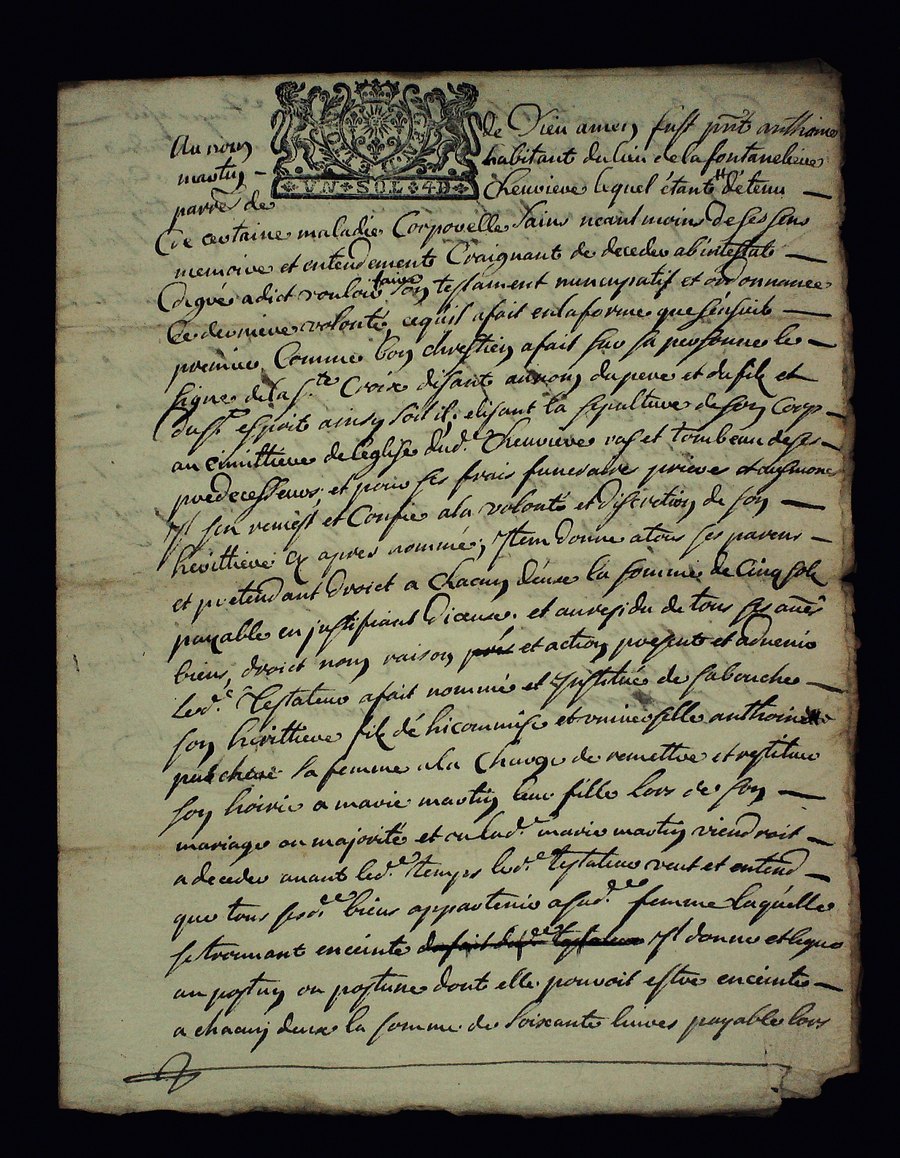 GEN.D
UN SOL 4D
Au nom de Dieu amen fust pnt anthoine
martin - habitant du lieu de la fontaneliere
parre de Chenviere lequel étant detenu
de certaine maladie Corporelle sains neantmoins de ses sens
memoire et entendement Craignant de deceder ab'intestat
de gré a dict vouloir faire son testament nuncupatif et ordonnance
de derniere volonté, ce quil a fait en la forme que sensuit
premier Comme bon chrestien a fait sur sa personne le
signe de la Ste Croix disant au nom du pere et du fils et
du St esprit ainsy soit il; elisant la sepulture de son Corp
au cimittiere de l'eglise dud. Chenviere vas et tombeau de ses
predecesseurs et pour ses frais funeraire priere et ausmones
Il sen remest et Confie a la volonté et discretion de son
hérittiere cy apres nommée; Item donne a tous ses parens
et pretendant droict a chacun deux la somme de Cinq sols
payable en justifiant diceux. et au residu de tous ses autres
biens, droict nom raison et action present et advenir
Led. Testateur a fait nommé et institué de sa bouche
son hérittiere fideicommise et universelle anthoinette
sa femme a la Charge de remettre et restituer
son hoirie a marie martin leur fille lors de son
mariage ou majorité et ou lad. marie martin viendroit
a deceder avant led. temps led. testateur veut et entend
que tous sesd. biens appartenir a sad. femme laquelle
se trouvant enceinte du fait dud. testateur Il donne et legue
au postun ou postune dont elle pouvoit estre enceinte
a chacun deux la somme de soixante livres payable lors